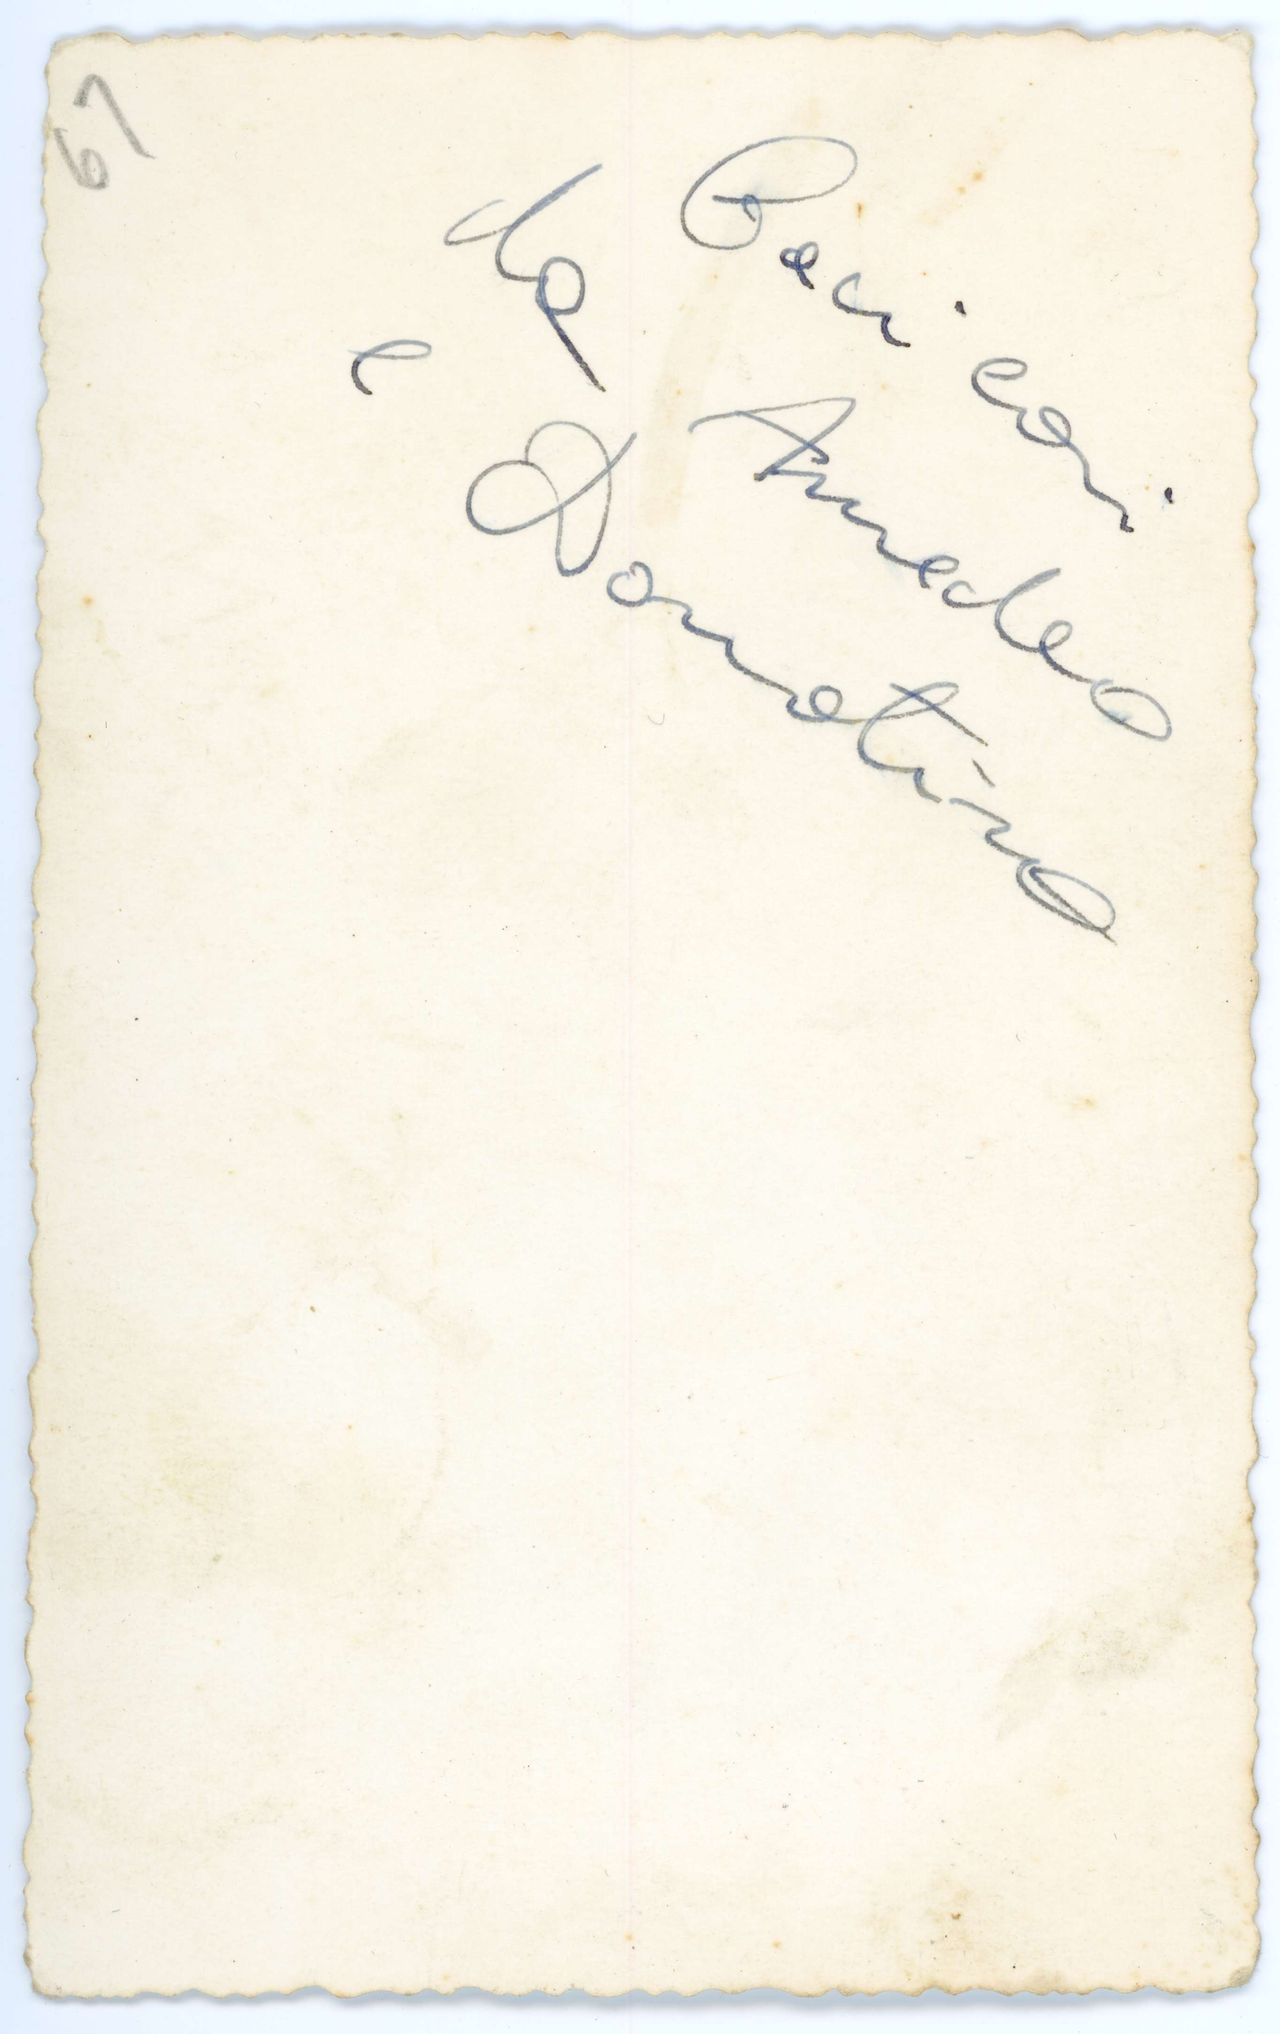 67
Baci cari
da Amedeo
e Donatina